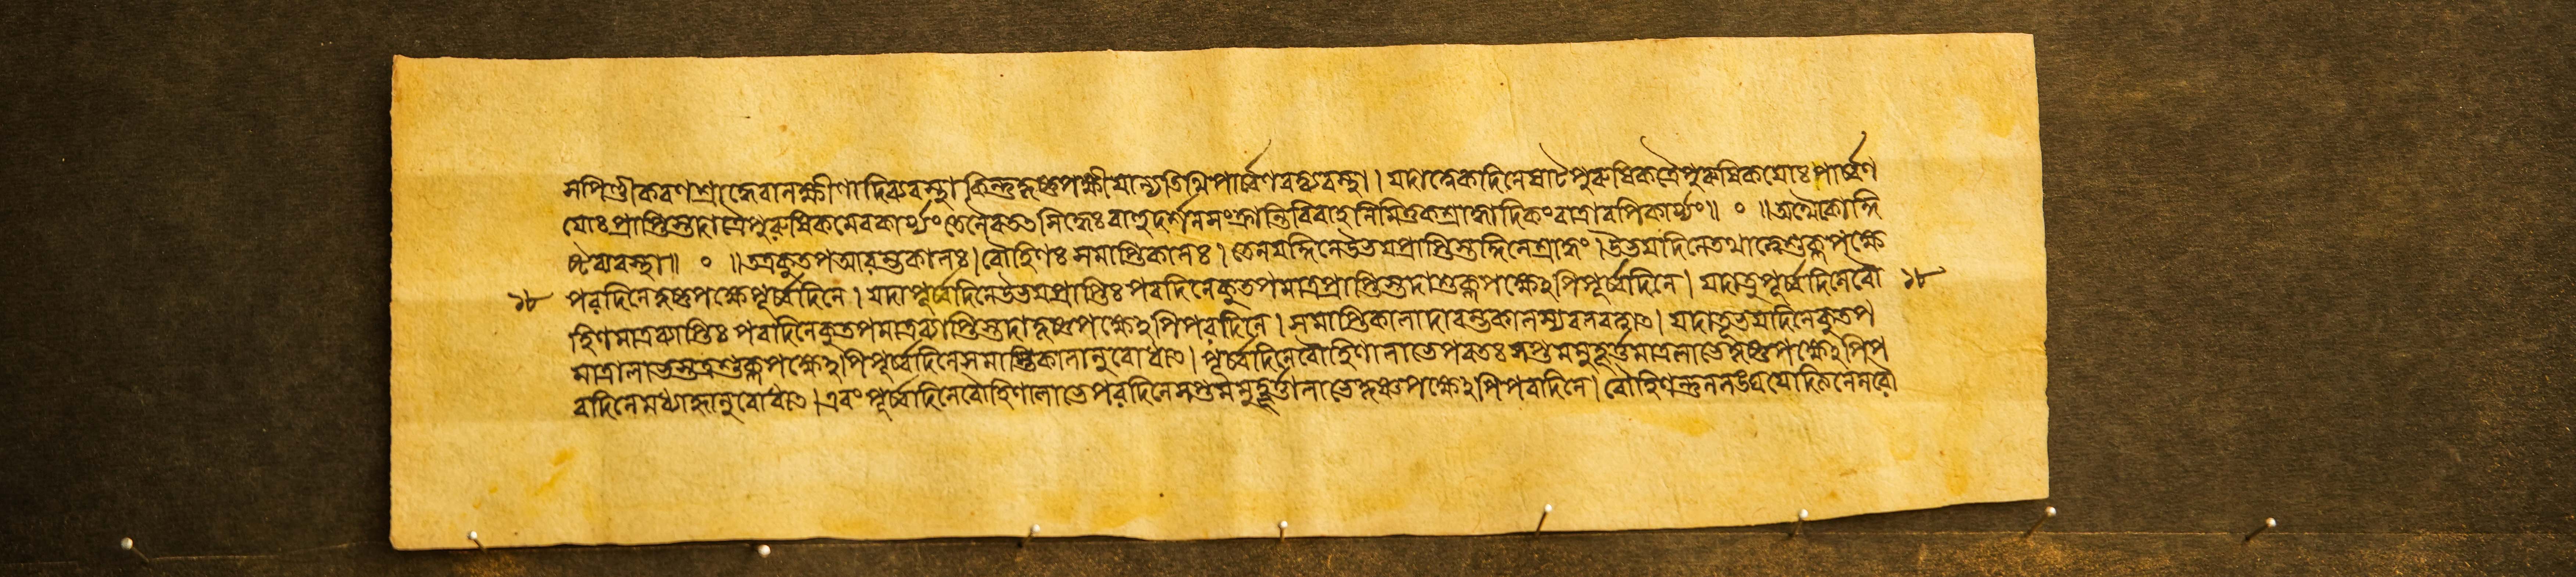 সপিণ্ডীকরণশ্রাদ্ধেবানক্ষীণাদিব্যবস্থা। কিন্তুকৃষ্ণপক্ষীয়ান্যতিথিপার্ব্বণবদ্ব্যবস্থা।। যদাত্বেকদিনেষাট্পুরুষিকত্রৈপুরুষিকয়োঃপার্ব্বণ
য়োঃপ্রাপ্তিস্তদাত্রৈপুরুষিকমেবকার্য্যং রাহুদর্শনসংক্রান্তিবিবাহনিমিত্তকশ্রাদ্ধাদিকংরাত্রাবপিকার্য্যং॥ ০ ॥
ব্যবস্থা॥ ০ ॥অত্রকুতপআরম্ভকালঃ।রৌহিণঃসমাপ্তিকালঃ। তেনযদ্দিনেউভয়প্রাপ্তিস্তদ্দিনেশ্রাদ্ধং। উভয়দিনেতথাত্বেশুক্লপক্ষে
১৮ পরদিনেকৃষ্ণপক্ষেপূর্ব্বদিনে। যদাপূর্ব্বদিনেউভয়প্রাপ্তিঃপরদিনেকুতপমাত্রপ্রাপ্তিস্তদাশুক্লপক্ষেঽপিপূর্ব্বদিনে। যদাতুপূর্ব্বদিনেরৌ ১৮
হিণমাত্রপ্রাপ্তিঃ পরদিনেকুতপমাত্রপ্রাপ্তিস্তদাকৃষ্ণপক্ষেঽপিপরদিনে। সমাপ্তিকালাদারম্ভকালস্যবলবত্ত্বাৎ। যদাতূভয়দিনেকুতপ
মাত্রলাভস্তত্রশুক্লপক্ষেঽপিপূর্ব্বদিনেসমাপ্তিকালানুরোধাৎ। পূর্ব্বদিনেরৌহিণালাভেপরতঃসপ্তমমুহূর্ত্তমাত্রলাভেকৃষ্ণপক্ষেঽপিপ
রদিনেমধ্যাহ্নানুরোধাৎ।এবংপূর্ব্বদিনেরৌহিণালাভেপরদিনেসপ্তমমুহূর্ত্তালাভেকৃষ্ণপক্ষেঽপিপরদিনে। রৌহিণন্তুনলঙ্ঘয়েদিতি